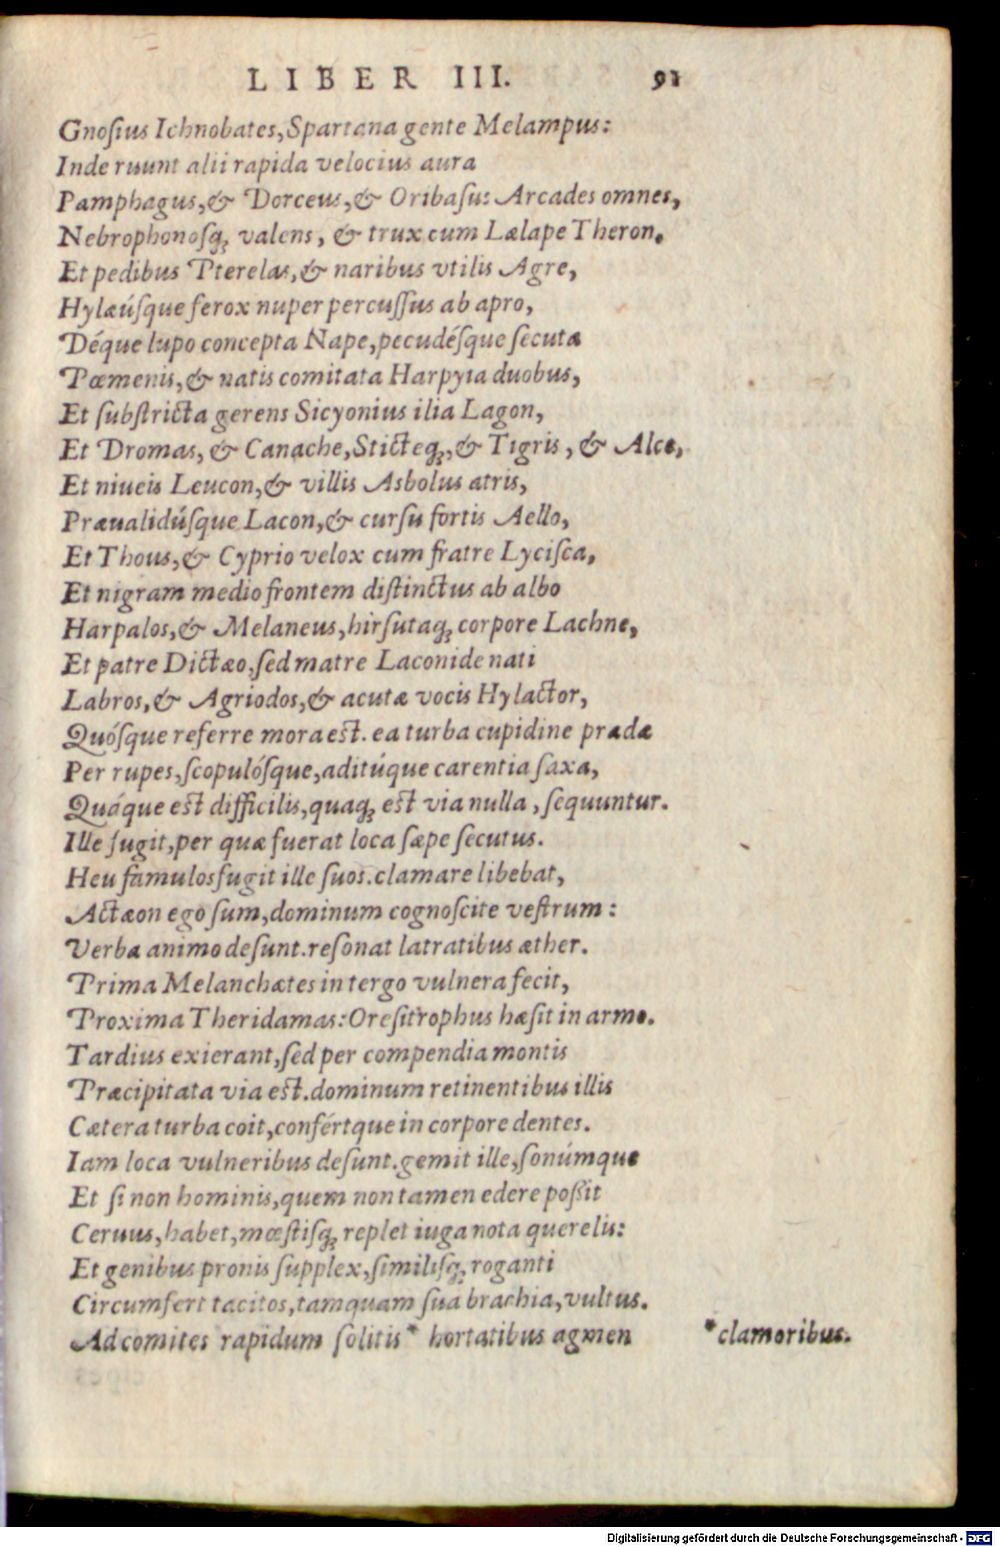 LIBER III. 91
Gnoſius Ichnobates, Spartana gente Melampus:
Inde ruunt alii rapida velocius aura
Pamphagus, & Dorceus, & Oribaſus: Arcades omnes,
Nebrophonoſq; valens, & trux cum Lælape Theron.
Et pedibus Pterelas, & naribus vtilis Agre,
Hylæúſque ferox nuper percuſſus ab apro,
Déque lupo concepta Nape, pecudéſque ſecuta
Pœmenis, & natis comitata Harpyia duobus,
Et ſubſtricta gerens Sicyonius ilia Lagon,
Et Dromas, & Canache, Sticteq;, & Tigris, & Alce,
Et niueis Leucon, & villis Asbolus atris,
Præualidúſque Lacon, & curſu fortis Aello,
Et Thous, & Cyprio velox cum fratre Lyciſca,
Et nigram medio frontem diſtinctus ab albo
Harpalos, & Melaneus, hirſutaq; corpore Lachne,
Et patre Dictæo, ſed matre Laconide nati
Labros, & Agriodos, & acutæ vocis Hylactor,
Quóſque referre mora eſt. ea turba cupidine prædæ
Per rupes, ſcopulóſque, aditúque carentia ſaxa,
Quáque eſt difficilis, quaq; eſt via nulla, ſequuntur.
Ille fugit, per quæ fuerat loca ſæpe ſecutus.
Heu famulos fugit ille ſuos. clamare libebat,
Actæon ego ſum, dominum cognoſcite veſtrum:
Verba animo deſunt. reſonat latratibus æther.
Prima Melanchætes in tergo vulnera fecit,
Proxima Theridamas: Oreſitrophus hæſit in armo.
Tardius exierant, ſed per compendia montis
Præcipitata via eſt. dominum retinentibus illis
Cætera turba coit, confértque in corpore dentes.
Iam loca vulneribus deſunt. gemit ille, ſonúmque
Et ſi non hominis, quem non tamen edere poßit
Ceruus, habet, mœſtiſq; replet iuga nota querelis:
Et genibus pronis ſupplex, ſimiliſq; roganti
Circumfert tacitos, tamquam ſua brachia, vultus.
Ad comites rapidum ſolitis* hortatibus agmen
*clamoribus.
Digitalisierung gefördert durch die Deutsche Forschungsgemeinschaft - DFG